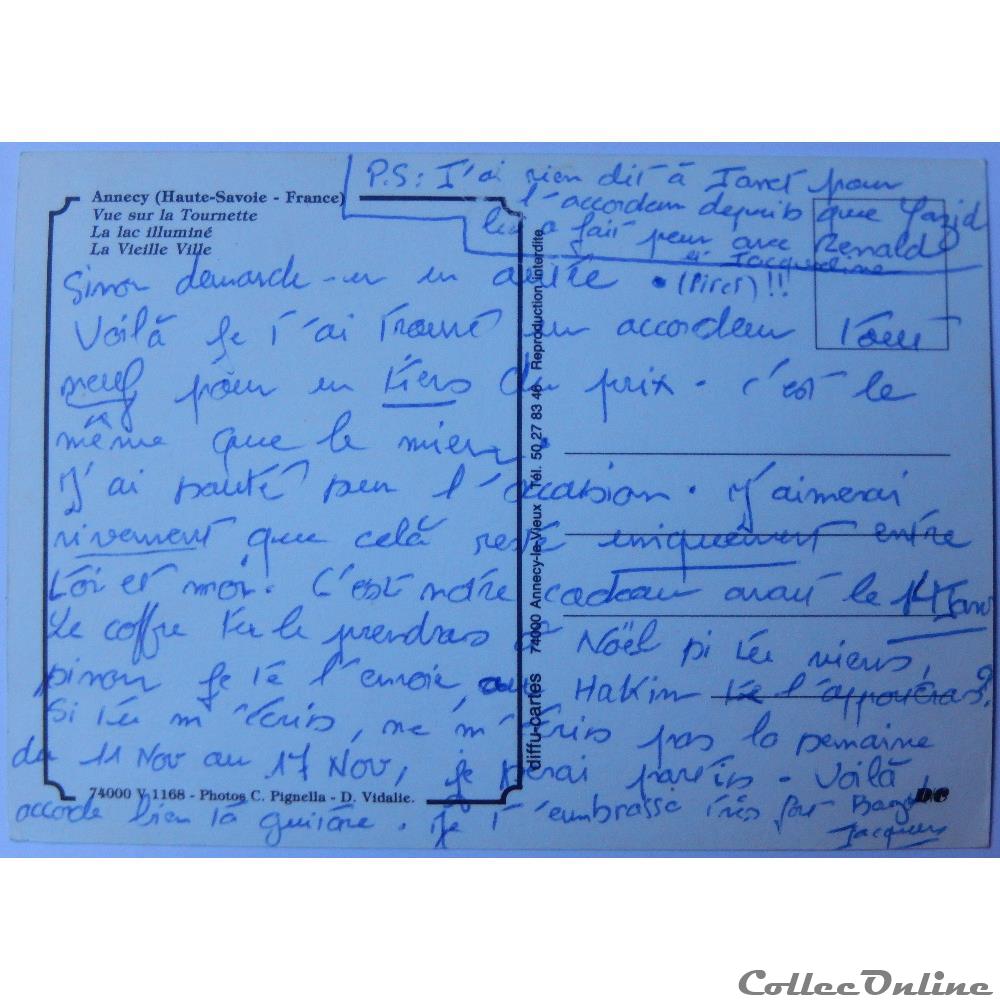 P.S: J'ai rien dit à Janet pour
l'accordeur depuis que Yazid
lui a fait peur avec Renald
et Jacqueline
Annecy (Haute-Savoie - France)
Vue sur la Tournette
La lac illuminé
La Vieille Ville
Sinon demande-m'en un autre • (Pires) !!!
Voilà je t'ai trouvé un accordeur tout
neuf pour un tiers du prix. c'est le
même que le mien.
J'ai sauté sur l'occasion. J'aimerai
vivement que celà reste uniquement entre
toi et moi. C'est notre cadeau avant le 14 Janv
Le coffre tu le prendras à Noël si tu viens,
sinon je te l'envoie, Hakim te l'apportera?
Si tu m'écris, ne m'écris pas la semaine
du 11 Nov au 17 Nov, je serai partis. Voilà,
accorde bien ta guitare. je t'embrasse très fort
Jacques
74000 V 1168 - Photos C. Pignella - D. Vidalie.
diffu-cartes 74000 Annecy-le-Vieux Tél. 50 27 83 46 Reproduction interdite
DC
CollecOnline